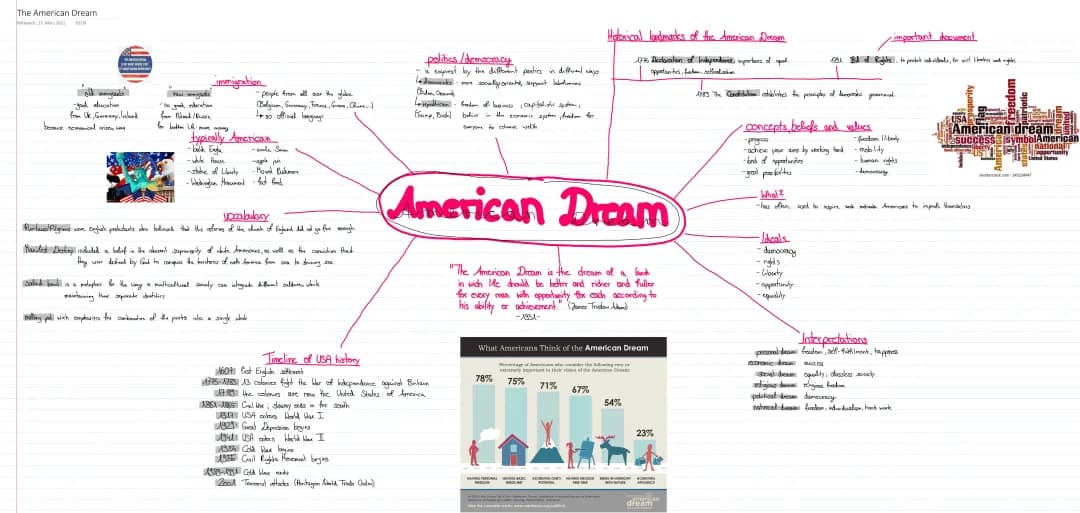 The American Dream
American Dream
immigration
"old immigrants"
- good education
from UK, Germany, Ireland
"new immigrants"
- no good education
from Poland/Russia
- people from all over the globe
(Belgium, Germany, France, Greece, China,..)
↳ no official language
typically American
- bald Eagle
- white House
- statue of Liberty
- Washington Monument
- uncle Sam
- Mount Rushmore
- fast food
vocabulary
Manifest Destiny included a belief in the inherent superiority of white Americans, as well as the conviction that
they were destined by God to conquer the territories of north America from sea to shining sea
salad bowl is a metaphor for the way a multicultural society can integrate different cultures while
maintaining their separate identities
melting pot wich emphasizes the combination of the parts into a single whole
Timeline of USA history
1607 First English settlement
1775-1783 13 colonies fight the War of Independence against Britain
the colonies are now the United States of America
1861-1865 Civil War; slavery ends in the south
1917 USA enters World War I
1929 Great Depression begins
1941 USA enters World War II
Cold War begins
Civil Rights Movement begins
Cold War ends
2001 Terrorist attacks (Pentagon, World Trade Center)
politics/democracy
- is support by the different parties in different ways
↳ democrats - more socially oriented, support
↳ republican - freedom of business, capitalistic system,
(Trump, Bush) believe in the economic system, freedom for
everyone to achieve wealth
Historical landmarks of the American Dream
1776 Declaration of Independence: importance of equal
opportunities, freedom,
The Constitution establishes the principles of democratic government
Bill of Rights: to protect individuals, for civil liberties and rights
important document
concepts, beliefs and values
- progress
- achieve your aims by working hard
- land of opportunities
- great possibilities
- freedom / liberty
- mobility
- human rights
- democracy
What?
- has often used to inspire and motivate Americans to improve themselves
Ideals
- democracy
- rights
- liberty
- opportunity
- equality
Interpretations
personal dream: freedom, self-fulfilment, happiness
economic dream: success
social dream: equality, classless society
religious dream: religious freedom
political dream: democracy
national dream: freedom, individualism, hard work
"The American Dream is the dream of a land
in wich life should be better and richer and fuller
for every man with opportunity for each according to
his ability or achievement." (James Truslow Adams)
-1931-
What Americans Think of the American Dream
Percentage of Americans who consider the following very or
extremely important to their visions of the American Dream:
78%
75%
71%
67%
54%
23%
HAVING PERSONAL FREEDOM
HAVING BASIC NEEDS MET
ACHIEVING ONE'S POTENTIAL
HAVING ENOUGH FREE TIME
BEING IN HARMONY WITH NATURE
ACHIEVING AFFLUENCE
american
dream
prosperity
flag
freedom
patriotic
USA
American dream
success
symbol
American
national
opportunity
United States